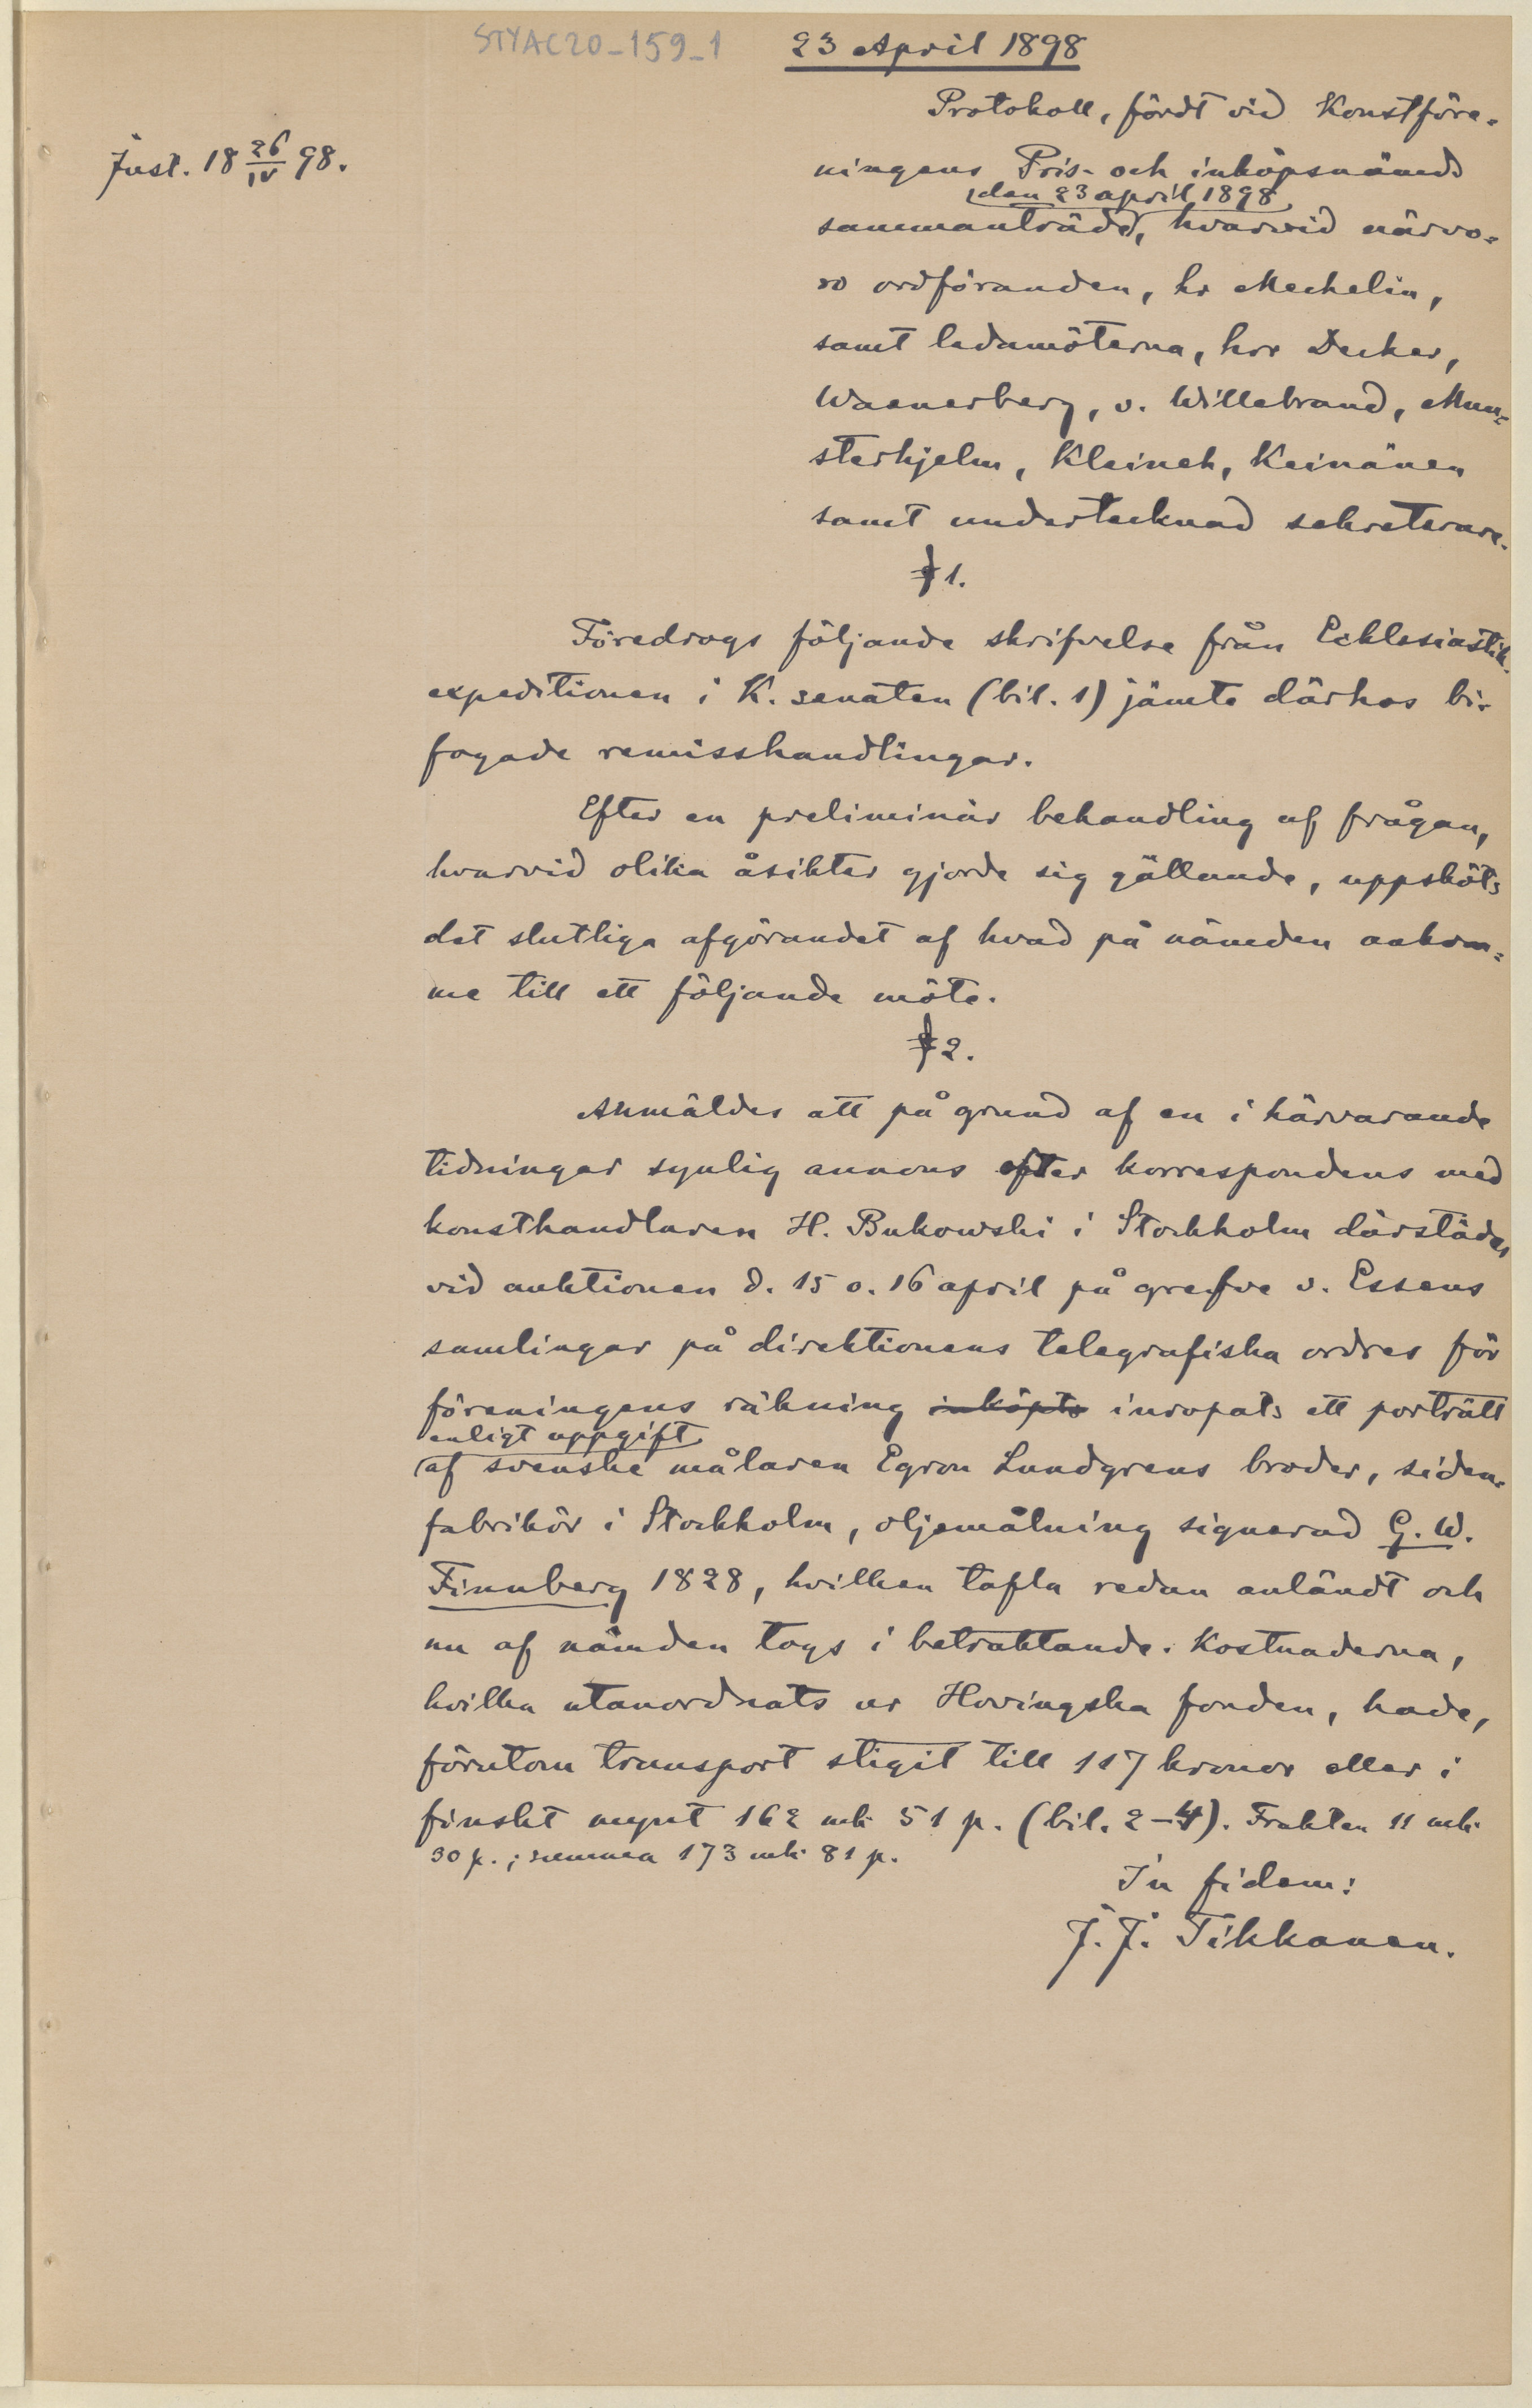 STYAC20-159-1
23 April 1898
Just. 18 26/IV 98.
Protokoll, fördt vid Konstföre-
ningens Pris- och inköpsnämds
den 23 april 1898
sammanträde, hvarvid närvo-
ro ordföranden, hr Mechelin,
samt ledamöterna, hrr Decker,
Waenerberg, v. Willebrand, Mun-
sterhjelm, Kleineh, Keinänen
samt undertecknad sekreterare.
§ 1.
Föredrogs följande skrifvelse från Ecklesiastik-
expeditionen i K. senaten (bil. 1) jämte därhos bi-
fogade remisshandlingar.
Efter en preliminär behandling af frågan,
hvarvid olika åsikter gjorde sig gällande, uppsköts
det slutliga afgörandet af hvad på nämden ankom-
me till ett följande möte.
§ 2.
Anmäldes att på grund af en i härvarande
tidningar synlig annons efter korrespondens med
konsthandlaren H. Bukowski i Stockholm därstädes
vid auktionen d. 15 o. 16 april på grefve v. Essens
samlingar på direktionens telegrafiska ordres för
föreningens räkning inköpts inropats ett porträtt
enligt uppgift
af svenske målaren Egron Lundgrens broder, siden-
fabrikör i Stockholm, oljemålning signerad G. W.
Finnberg 1828, hvilken tafla redan anländt och
nu af nämden togs i betraktande. Kostnaderna,
hvilka utanordnats ur Hovingska fonden, hade,
förutom transport stigit till 117 kronor eller i
finskt mynt 162 mk 51 p. (bil. 2-4). Frakten 11 mk
30 p.; summa 173 mk 81 p.
In fidem:
J. J. Tikkanen.